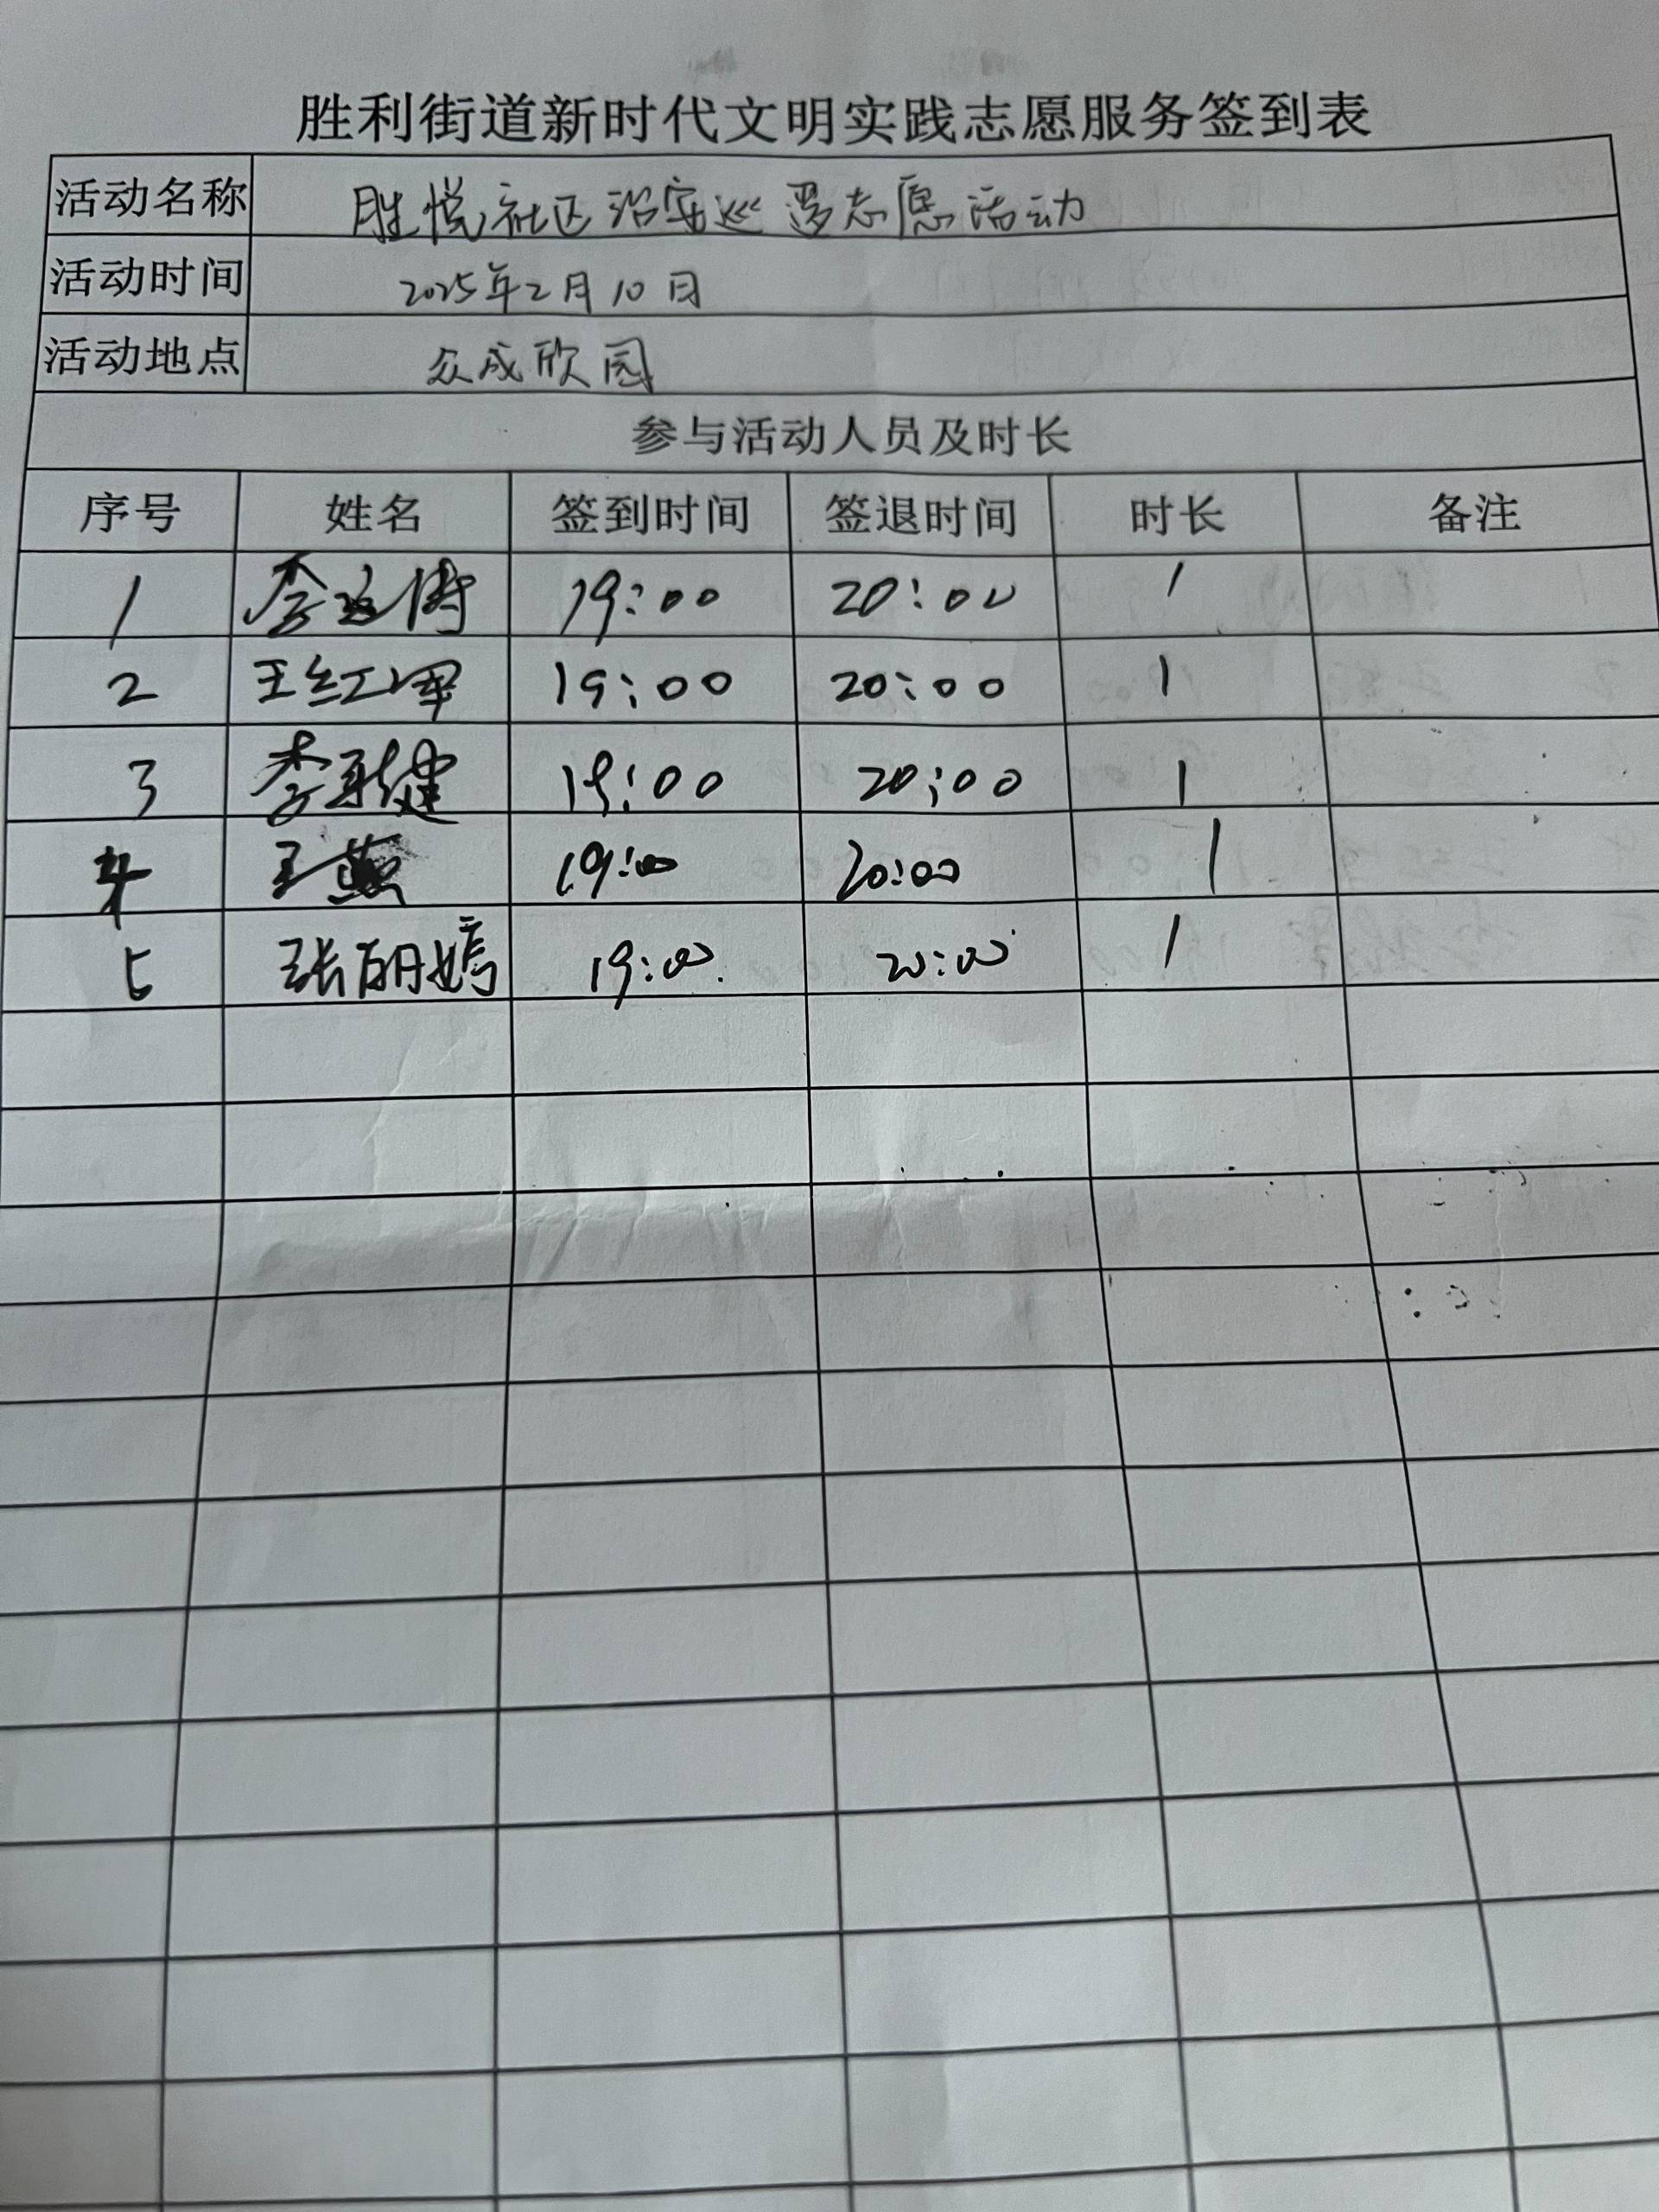 胜利街道新时代文明实践志愿服务签到表
活动名称 胜悦社区治安巡逻志愿活动
活动时间 2025年2月10日
活动地点 众成欣园
参与活动人员及时长
序号 姓名 签到时间 签退时间 时长 备注
1 李 19:00 20:00 1
2 王红军 19:00 20:00 1
3 李建 19:00 20:00 1
4 王燕 19:00 20:00 1
5 张丽嫣 19:00 20:00 1